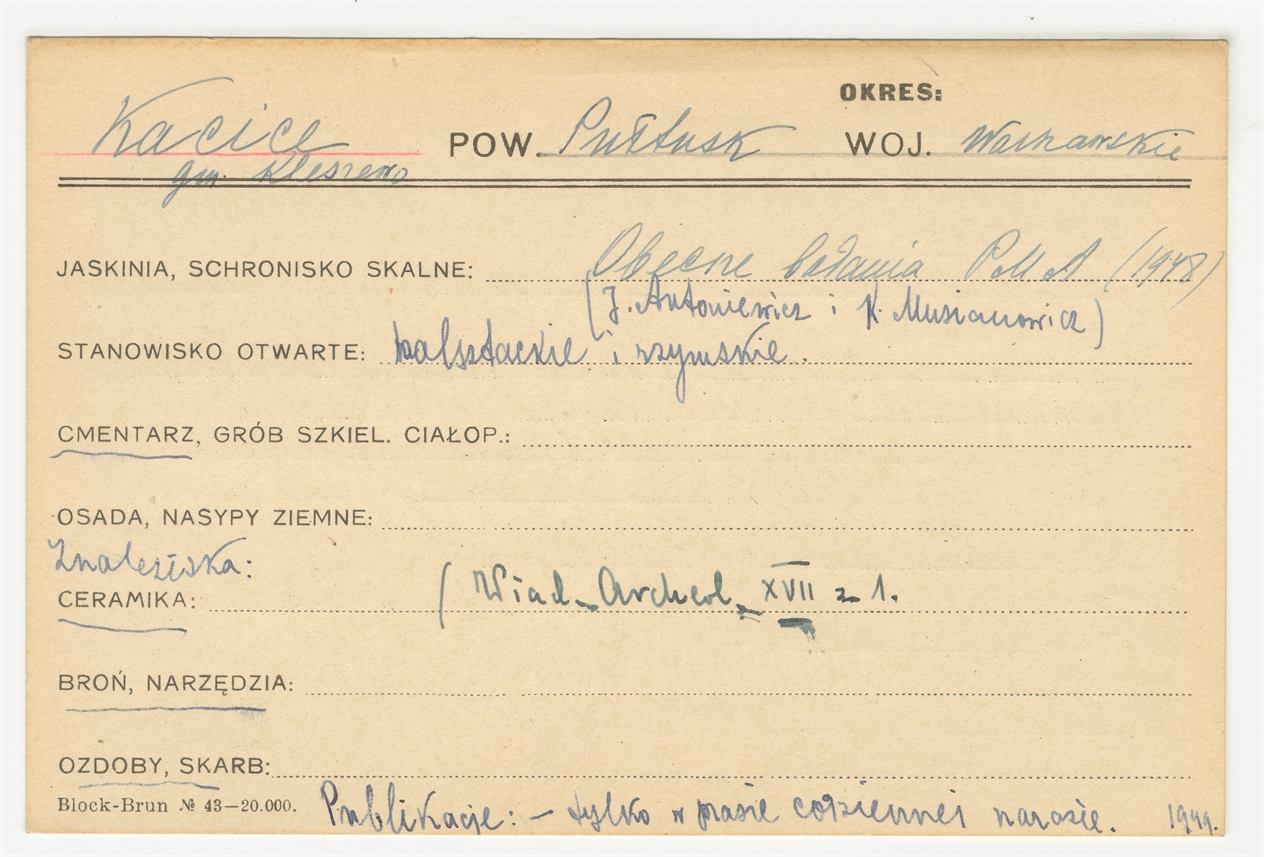 OKRES:
Kacice POW. Pułtusk WOJ. Warszawskie
gm. Kleszewo
JASKINIA, SCHRONISKO SKALNE: Obecne badania P.M.A (1948)
(J. Antoniewicz i K. Musianowicz)
STANOWISKO OTWARTE: halsztackie i rzymskie.
CMENTARZ, GRÓB SZKIEL. CIAŁOP.:
OSADA, NASYPY ZIEMNE:
Znaleziska:
CERAMIKA: (Wiad. Archeol. XVII z 1.
BROŃ, NARZĘDZIA:
OZDOBY, SKARB:
Block-Brun № 43—20.000. Publikacje: – tylko w prasie codziennej narazie. 1949.